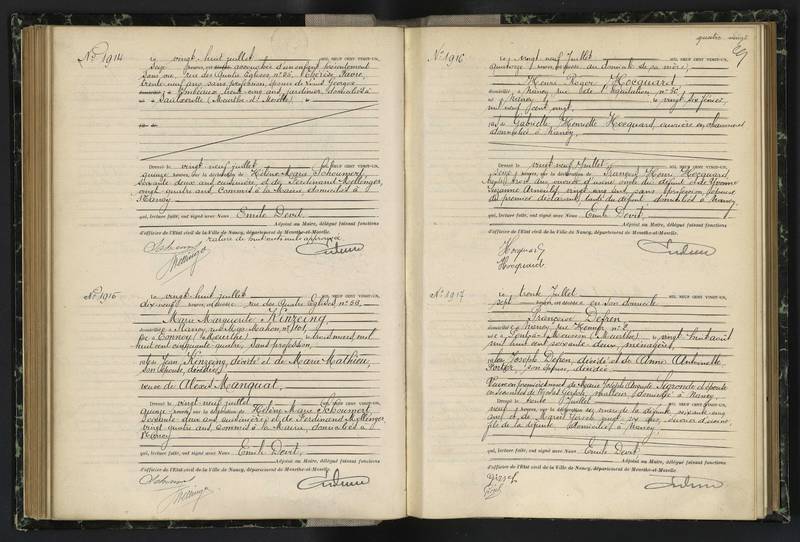 No 1914
Le vingt-huit juillet MIL NEUF CENT VINGT-UN,
seize heures, accouchée d'un enfant présentement
sans vie, rue des Quatre Eglises no 55,
trente neuf ans sans profession, épouse de Louis Georges
ans, jardinier, domiciliés à
(Meurthe-et-Moselle)
Dressé le vingt neuf juillet MIL NEUF CENT VINGT-UN,
quinze heures, sur la déclaration de Hélène Marie Schoumert,
soixante deux ans cuisinière, et de Ferdinand Mellenger,
vingt quatre ans commis à la Mairie, domiciliés à
Nancy
qui, lecture faite, ont signé avec Nous Emile Devit,
Adjoint au Maire, délégué faisant fonctions
d'officier de l'Etat civil de la Ville de Nancy, département de Meurthe-et-Moselle.
rature de huit centimètre approuvée
No 1915
Le vingt-huit juillet MIL NEUF CENT VINGT-UN,
dix-neuf heures, rue des Quatre Eglises, no 59,
Marie Marguerite Kinzeing
domiciliée à Nancy, rue Mac-Mahon, no 101,
née à (Meurthe) le mil
huit cent cinquante quatre, sans profession,
fille de Jean Kinzeing, décédé et de Marie Mathieu,
son épouse, décédée,
veuve de Alexis Manquat.
Dressé le vingt neuf juillet MIL NEUF CENT VINGT-UN,
quinze heures, sur la déclaration de Hélène Marie Schoumert,
soixante deux ans cuisinière et de Ferdinand Mellenger,
vingt quatre ans commis à la Mairie, domiciliés à
Nancy
qui, lecture faite, ont signé avec Nous Emile Devit,
Adjoint au Maire, délégué faisant fonctions
d'officier de l'Etat civil de la Ville de Nancy, département de Meurthe-et-Moselle.
quatre vingt
No 1916
Le vingt neuf juillet MIL NEUF CENT VINGT-UN,
quatorze heures, au domicile de sa mère,
Henri Roger Hocquard
domicilié à Nancy, rue de l'Equitation no 30,
né à Nancy le vingt six février,
mil neuf cent vingt,
fils de Gabrielle Henriette Hocquard, ouvrière en chaussures
domiciliée à Nancy.
Dressé le vingt neuf juillet MIL NEUF CENT VINGT-UN,
seize heures, sur la déclaration de François Henri Hocquard
vingt trois ans, ouvrier d'usine, oncle du défunt et de Yvonne
Suzanne Arnould, vingt ans, sans profession, épouse
du premier déclarant, tante du défunt, domiciliés à Nancy,
qui, lecture faite, ont signé avec Nous Emile Devit,
Adjoint au Maire, délégué faisant fonctions
d'officier de l'Etat civil de la Ville de Nancy, département de Meurthe-et-Moselle.
Hocquard
Hocquard
No 1917
Le trente juillet MIL NEUF CENT VINGT-UN,
sept heures, en son domicile
Françoise Defren
domiciliée à Nancy, rue Homer no 2,
née à Pont-à-Mousson (Meurthe) le vingt huit avril
mil huit cent soixante-deux, ménagère,
fille de Joseph Defren, décédé et de Anne Antoinette
son épouse, décédée.
Veuve en premières noces de Marie Joseph Auguste Legronde et épouse
en secondes de Nicolas domicilié à Nancy.
Dressé le trente juillet MIL NEUF CENT VINGT-UN,
neuf heures, sur la déclaration du mari de la défunte, soixante cinq
ans, et de Marcel ans, ouvrier d'usine,
fils de la défunte, domiciliés à Nancy,
qui, lecture faite, ont signé avec Nous Emile Devit,
Adjoint au Maire, délégué faisant fonctions
d'officier de l'Etat civil de la Ville de Nancy, département de Meurthe-et-Moselle.